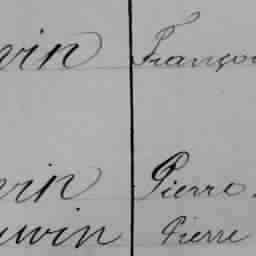 vin Franço
vin Pierre
uvin Pierre